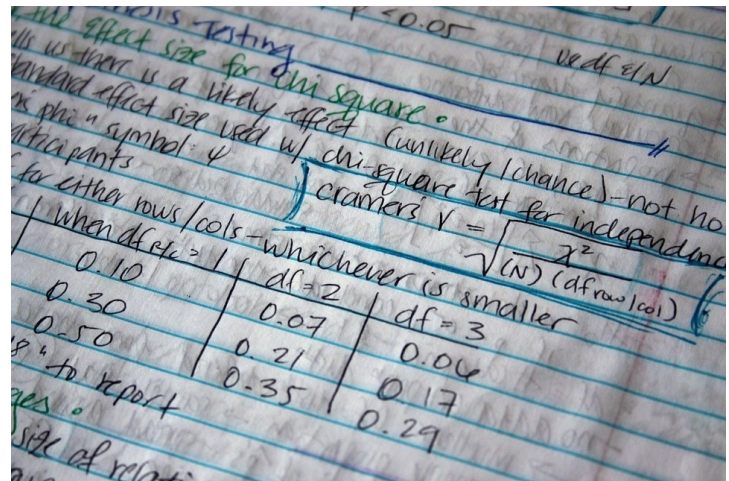 p < 0.05
ve df & N
hesis Testing
the effect size for chi square.
lls us there is a likely effect (unlikely / chance) - not no
tandard effect size used w/ chi-square test for independenc
"phi" symbol: φ
articipants
cramers V = √ x² / (N) (df row/col)
for either rows/cols - whichever is smaller
when df r/c = 1 df = 2 df = 3
0.10 0.07 0.06
0.30 0.21 0.17
0.50 0.35 0.29
" to report
ges.
size of relati